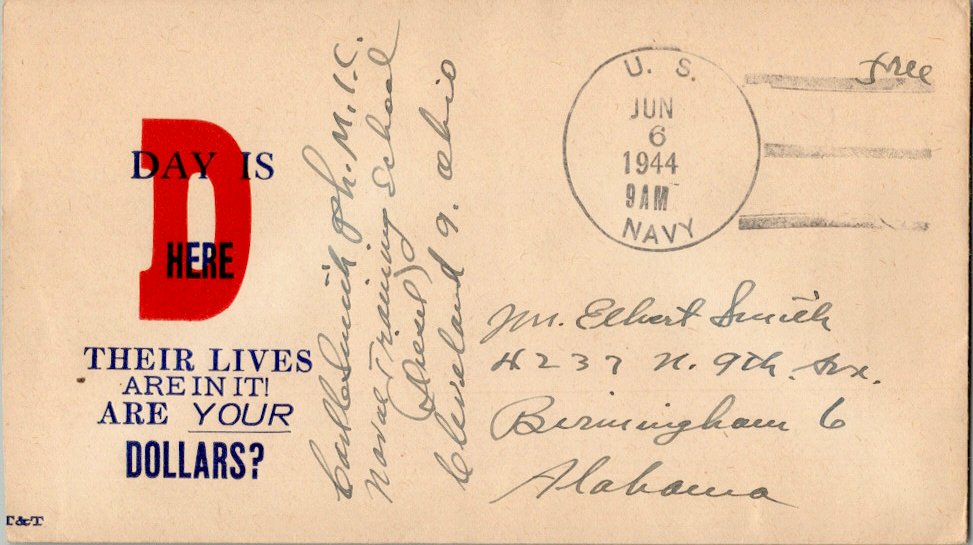 DAY IS
D
HERE
THEIR LIVES
ARE IN IT!
ARE YOUR
DOLLARS?
T&T
Carl Smith Ph. M. 1. C.
Naval Training School
(Diesel)
Cleveland 9. Ohio
U. S.
JUN
6
1944
9AM
NAVY
Free
Mr. Elbert Smith
4237 N. 9th. Ave.
Birmingham 6
Alabama